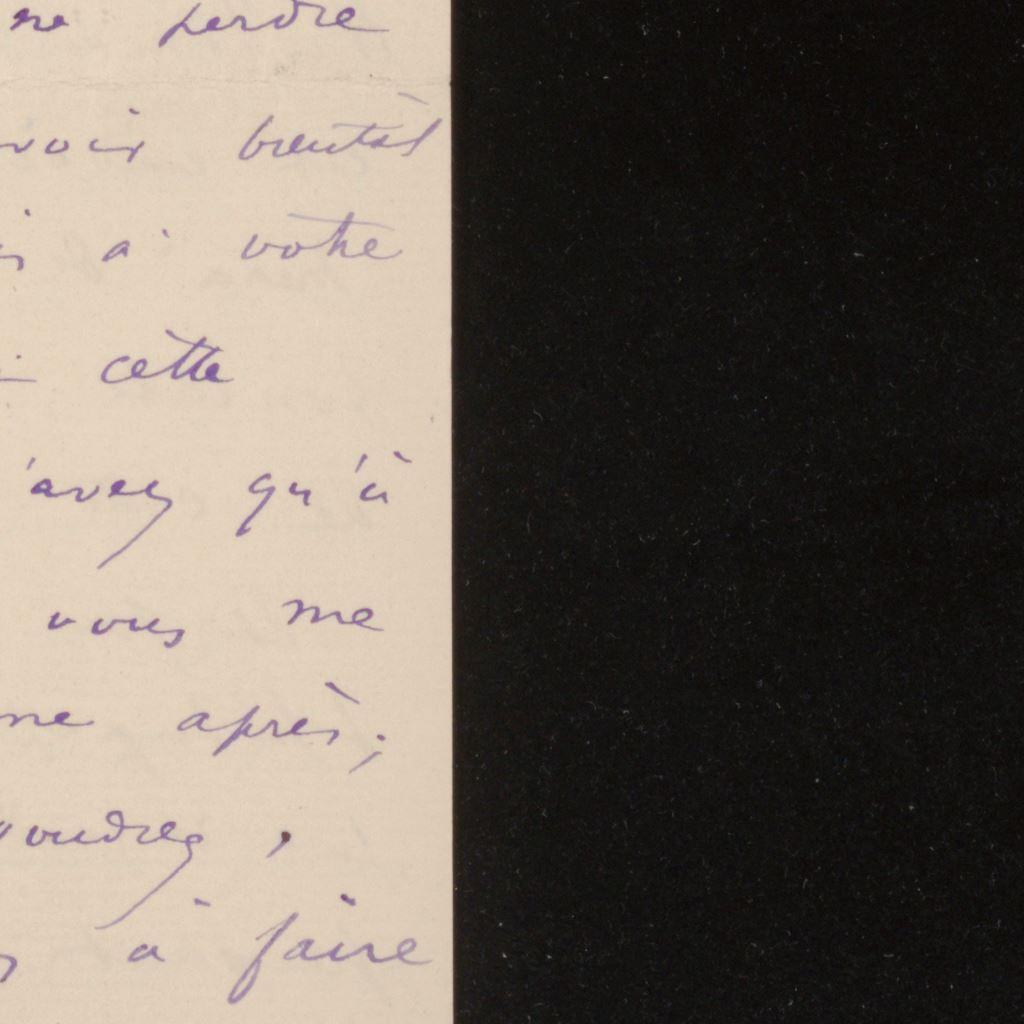 ne perdre
voir bientôt
à votre
cette
'avez qu'à
vous me
me après ;
voudrez ,
à faire